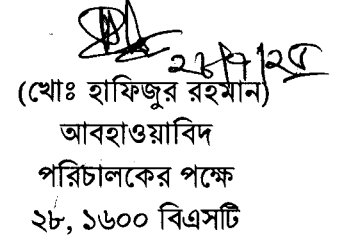 ২৮/৭/২৫
(খোঃ হাফিজুর রহমান)
আবহাওয়াবিদ
পরিচালকের পক্ষে
২৮, ১৬০০ বিএসটি